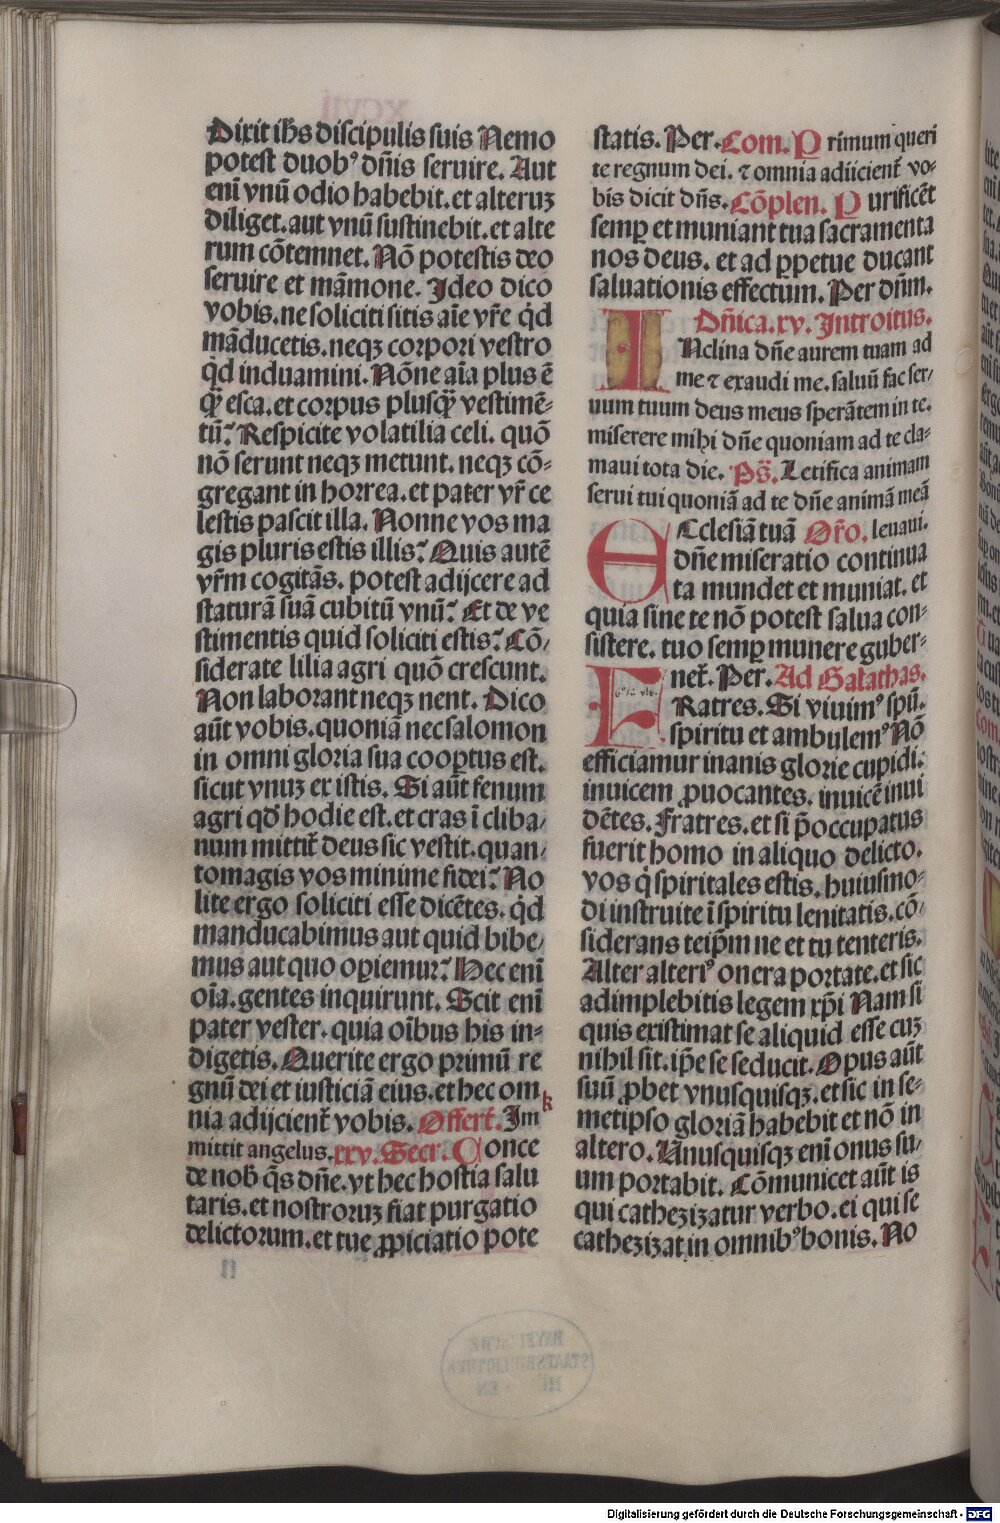 Dixit ih̄s discipulis suis Nemo
potest duobꝰ dn̄is seruire. Aut
eni᷉ vnū odio habebit. et alteruꝫ
diliget. aut vnū sustinebit. et alte
rum cōtemnet. Nō potestis deo
seruire et māmone. Ideo dico
vobis. ne soliciti sitis aīe vr̄e qͥd
māducetis. neqꝫ corpori vestro
qͥd induamini. Nōne aīa plus ē
qͣ̄ esca. et corpus plusqͣ̄ vestimē⸗
tū? Respicite volatilia celi. quō
nō serunt neqꝫ metunt. neqꝫ cō⸗
gregant in horrea. et pater vr̄ ce
lestis pascit illa. Nonne vos ma
gis pluris estis illis? Quis autē
vr̄m cogitās. potest adijcere ad
staturā suā cubitū vnū? Et de ve
stimentis quid soliciti estis? Cō/
siderate lilia agri quō crescunt.
Non laborant neqꝫ nent. Dico
aūt vobis. quoniā nec salomon
in omni gloria sua coop̄tus est.
sicut vnuꝫ ex istis. Si aūt fenum
agri qd̄ hodie est. et cras ī cliba/
num mittit᷑ deus sic vestit. quan/
tomagis vos minime fidei? No
lite ergo soliciti esse dicētes. qͥd
manducabimus aut quid bibe/
mus aut quo op̄iemur? Hec eni᷉
oīa. gentes inquirunt. Scit eni᷉
pater vester. quia oībus his in⸗
digetis. Querite ergo primū re
gnū dei et iusticiā eius. et hec om
nia adijcient᷑ vobis. Offert᷑. Im
mittit angelus. xxv. Secr. Conce
de nob̄ q̄s dn̄e. vt hec hostia salu
taris. et nostroruꝫ fiat purgatio
delictorum. et tue ꝓpiciatio pote
statis. Per. Com. Primum queri
te regnum dei. ⁊ omnia adiicient᷑ vo⸗
bis dicit dn̄s. Cōplen. Purificēt
semꝑ et muniant tua sacramenta
nos deus. et ad ꝑpetue ducant
saluationis effectum. Per dn̄m.
Dn̄ica. xv. Introitus.
INclina dn̄e aurem tuam ad
me ⁊ exaudi me. saluū fac ser/
uum tuum deus meus sperātem in te.
miserere mihi dn̄e quoniam ad te cla⸗
maui tota die. Ps̄. Letifica animam
serui tui quoniā ad te dn̄e animā meā
ECclesiā tuā Or̄o. leuaui.
dn̄e miseratio continua
ta mundet et muniat. et
quia sine te nō potest salua con⸗
sistere. tuo semꝑ munere guber⸗
net᷑. Per. Ad Galathas.
FRatres. Si viuimꝰ spū.
spiritu et ambulemꝰ Nō
efficiamur inanis glorie cupidi.
inuicem ꝓuocantes. inuicē inui
dētes. Fratres. et si p̄occupatus
fuerit homo in aliquo delicto.
vos qͥ spiritales estis. huiusmo⸗
di instruite ī spiritu lenitatis. cō/
siderans teip̄m ne et tu tenteris.
Alter alteriꝰ onera portate. et sic
adimplebitis legem xp̄i Nam si
quis existimat se aliquid esse cuꝫ
nihil sit. ip̄e se seducit. Opus aūt
suū ꝓbet vnusquisqꝫ. et sic in se⸗
metipso gloriā habebit et nō in
altero. Unusquisqꝫ eni᷉ onus su/
um portabit. Cōmunicet aūt is
qui cathezizatur verbo. ei qui se
cathezizat in omnibꝰ bonis. No
Digitalisierung gefördert durch die Deutsche Forschungsgemeinschaft - DFG